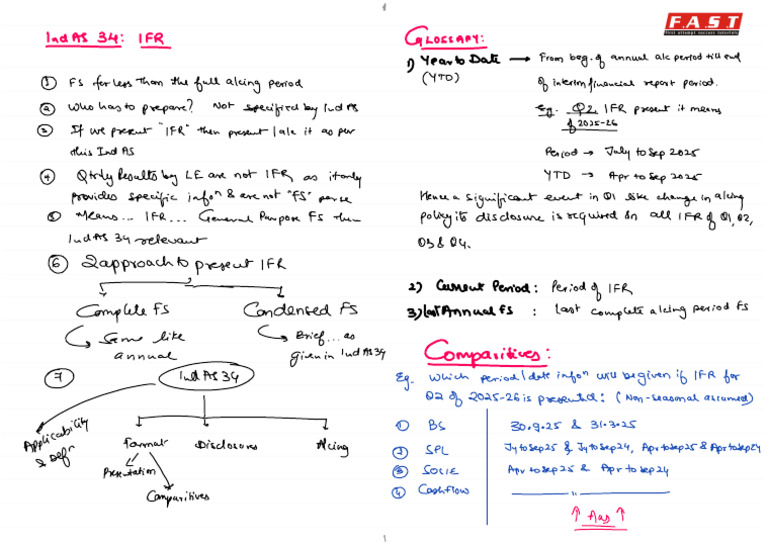 Ind AS 34: IFR
① FS for less than the full a/cing period
② Who has to prepare? Not specified by Ind AS
③ If we present "IFR" then present / a/c it as per
this Ind AS
④ Qtrly Results by LE are not IFR as it only
provides specific infoⁿ & are not "FS" perse
⑤ Means... IFR... General Purpose FS then
Ind AS 34 relevant
⑥ 2 approach to present IFR
Complete FS Condensed FS
Same like Brief... as
annual given in Ind AS 34
⑦ Ind AS 34
Applicability Format Disclosures A/cing
& Defⁿ
Presentation
Comparitives
F.A.S.T
first attempt success tutorials
GLOSSARY:
1) Year to Date → From beg. of annual a/c period till end
(YTD) of interim financial report period.
Eg. Q2 IFR present it means
of 2025-26
Period → July to Sep 2025
YTD → Apr to Sep 2025
Hence a significant event in Q1 like change in a/cing
policy its disclosure is required in all IFR of Q1, Q2,
Q3 & Q4.
2) Current Period: Period of IFR
3) Last Annual FS : Last complete a/cing period FS
Comparitives:
Eg. Which period/date infoⁿ will be given if IFR for
Q2 of 2025-26 is presented: (Non-seasonal assumed)
① BS 30.9.25 & 31.3.25
② SPL Jy to Sep 25 & Jy to Sep 24, Apr to Sep 25 & Apr to Sep 24
③ SOCIE Apr to Sep 25 & Apr to Sep 24
④ Cashflow —— " ——
↑ Ans ↑